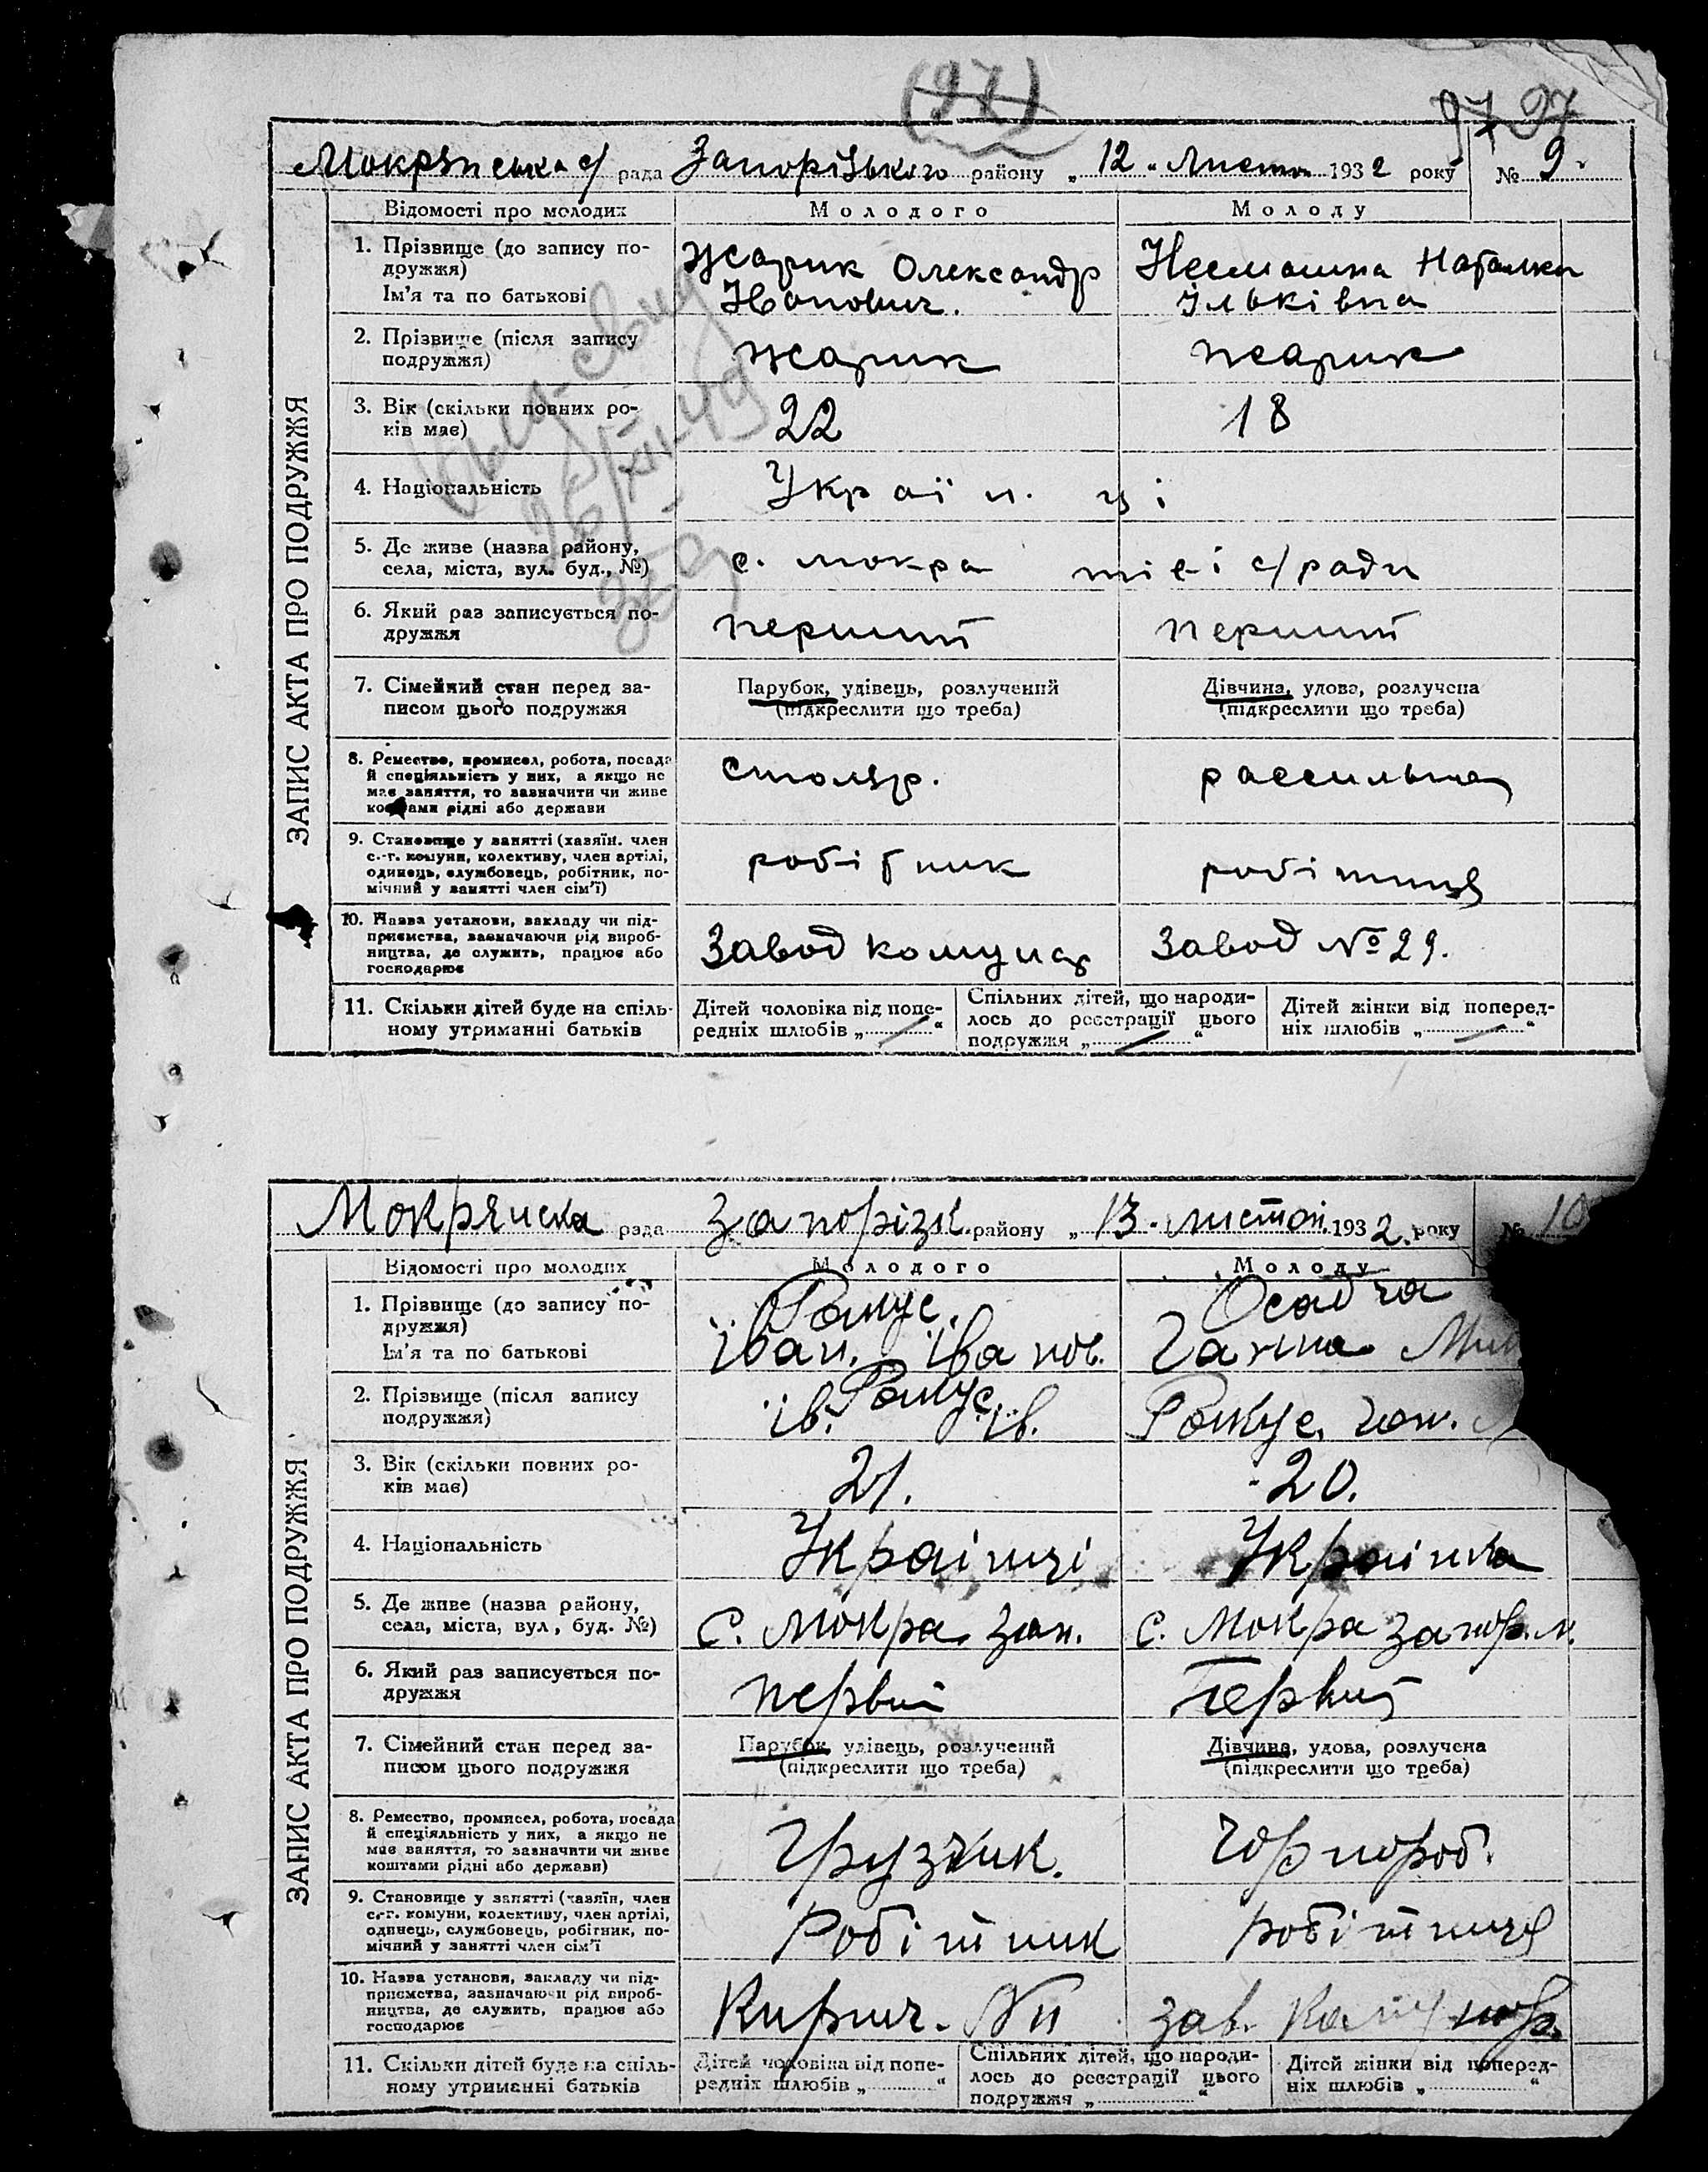 (97)
97 97
Мокрянська с/ рада Запорізького району „ 12 „ Листоп 1932 року № 9.
Відомості про молодих Молодого Молоду
ЗАПИС АКТА ПРО ПОДРУЖЖЯ
1. Прізвище (до запису по-
дружжя)
Ім'я та по батькові
Жарик Олександр
Іванович.
Наталка
Ільківна
2. Прізвище (після запису
подружжя)
Жарик Жарик
3. Вік (скільки повних ро-
ків має)
22 18
4. Національність
Україн. ці
5. Де живе (назва району,
села, міста, вул. буд., №)
с. мокра тієі с/ради
6. Який раз записується по-
дружжя
перший перший
7. Сімейний стан перед за-
писом цього подружжя
Парубок, удівець, розлучений
(підкреслити що треба)
Дівчина, удова, розлучена
(підкреслити що треба)
8. Ремество, промисел, робота, посада
й спеціяльність у них, а якщо не
має заняття, то зазначити чи живе
коштами рідні або держави
столяр. рассильна
9. Становище у занятті (хазяїн. член
с.-г. комуни, колективу, член артілі,
одинець, службовець, робітник, по-
мічний у занятті член сім'ї)
робітник робітниця
10. Назва установи, закладу чи під-
приємства, зазначаючи рід вироб-
ництва, де служить, працює або
господарює
Завод комунар Завод № 29.
11. Скільки дітей буде на спіль-
ному утриманні батьків
Дітей чоловіка від попе-
редніх шлюбів „ / “
Спільних дітей, що народи-
лось до реєстрації цього
подружжя „ / “
Дітей жінки від поперед-
ніх шлюбів „ / “
26/XII-49
Мокрянска рада Запорізк. району „ 13 „ листоп. 1932. року № 10
Відомості про молодих Молодого Молоду
ЗАПИС АКТА ПРО ПОДРУЖЖЯ
1. Прізвище (до запису по-
дружжя)
Ім'я та по батькові
Іван. Іванов.
Осадча
Ганна
2. Прізвище (після запису
подружжя)
ів. ів.
ган.
3. Вік (скільки повних ро-
ків має)
21. 20.
4. Національність
Украінці Украінка
5. Де живе (назва району,
села, міста, вул, буд. №)
с. Мокра зап. с. Мокра запор.
6. Який раз записується по-
дружжя
Первий Первий
7. Сімейний стан перед за-
писом цього подружжя
Парубок, удівець, розлучений
(підкреслити що треба)
Дівчина, удова, розлучена
(підкреслити що треба)
8. Ремество, промисел, робота, посада
й спеціяльність у них, а якщо не
має заняття, то зазначити чи живе
коштами рідні або держави)
Грузчик. Чорнороб.
9. Становище у занятті (хазяїн, член
с.-г. комуни, колективу, член артілі,
одинець, службовець, робітник, по-
мічний у занятті член сім'ї
Робітник робітниця
10. Назва установи, закладу чи під-
приємства, зазначаючи рід вироб-
ництва, де служить, працює або
господарює
Кирпич. зав. Комунар.
11. Скільки дітей буде на спіль-
ному утриманні батьків
Дітей чоловіка від попе-
редніх шлюбів „ “
Спільних дітей, що народи-
лось до реєстрації цього
подружжя „ “
Дітей жінки від поперед-
ніх шлюбів „ “